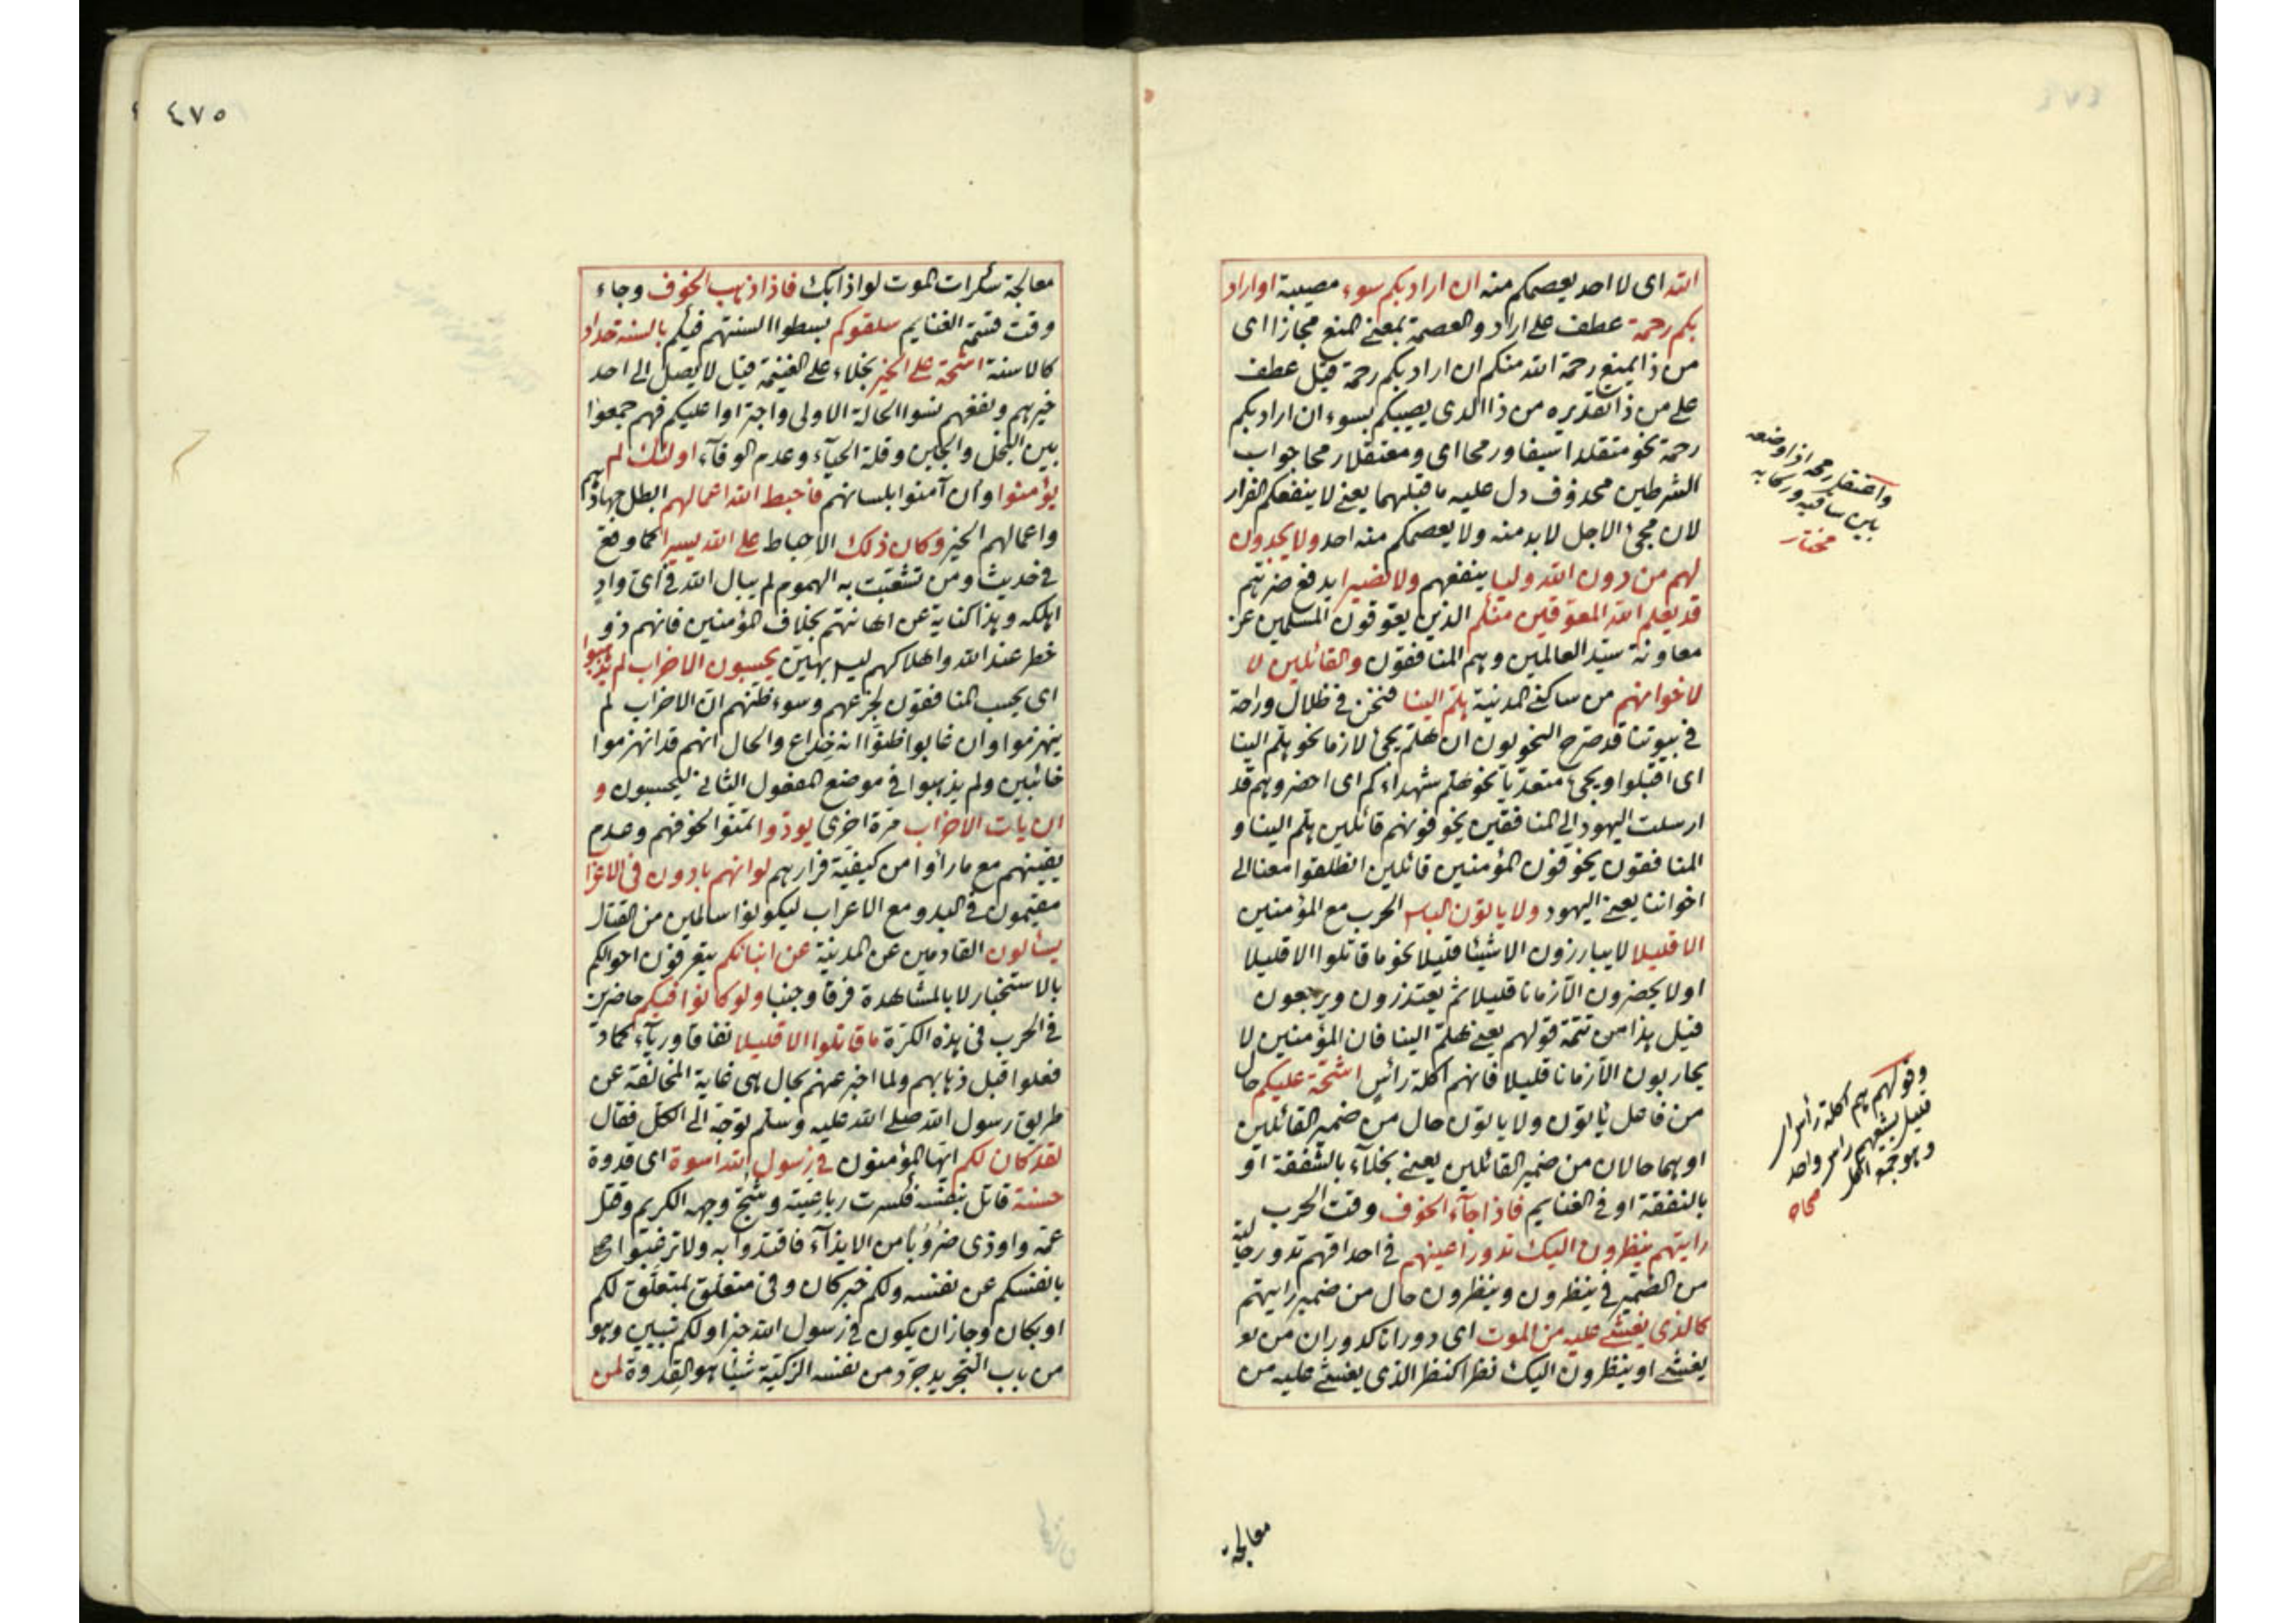 الله اى لا احد يعصمكم منه ان اراد بكم سوء مصيبة او اراد
بكم رحمة عطف على اراد والعصمة بمعنى المنع مجازا اى
من ذا يمنع رحمة الله منكم ان اراد بكم رحمة قيل عطف
على من ذا تقديره من ذا الذى يصيبكم بسوء ان اراد بكم
رحمة نحو متقلدا سيفا ورمحا اى ومعتقلا رمحا جواب
الشرطين محذوف دل عليه ما قبلهما يعنى لا ينفعكم الفرار
لان مجئ الاجل لا بد منه ولا يعصمكم منه احد ولا يجدون
لهم من دون الله وليا ينفعهم ولا نصيرا يدفع ضرتهم
قد يعلم الله المعوقين منكم الذين يعوقون المسلمين عن
معاونة سيد العالمين وهم المنافقون والقائلين لا
لاخوانهم من ساكنى المدينة هلم الينا فنحن فى ظلال وراحة
فى بيوتنا قد صرح النحويون ان هلم يجئ لازما نحو هلم الينا
اى اقبلوا ويجئ متعديا نحو هلم شهداءكم اى احضروهم قد
ارسلت اليهود الى المنافقين يخوفونهم قائلين هلم الينا و
المنافقون يخوفون المؤمنين قائلين انطلقوا معنا الى
اخواننا يعنى اليهود ولا يأتون البأس الحرب مع المؤمنين
الا قليلا لا يبارزون الا شيئا قليلا نحو ما قاتلوا الا قليلا
او لا يحضرون الا زمانا قليلا ثم يعتذرون ويرجعون
قيل هذا من تتمة قولهم يعنى هلم الينا فان المؤمنين لا
يحاربون الا زمانا قليلا فانهم اكلة رأس اشحة عليكم حال
من فاعل يأتون ولا يأتون حال من ضمير القائلين
او هما حالان من ضمير القائلين يعنى بخلاء بالشفقة او
بالنفقة او فى الغنايم فاذا جآء الخوف وقت الحرب
رايتهم ينظرون اليك تدور اعينهم فى احداقهم تدور حالية
من الضمير فى ينظرون وينظرون حال من ضمير رايتهم
كالذى يغشى عليه من الموت اى دورانا كدوران من
يغشى او ينظرون اليك نظرا كنظر الذى يغشى عليه من
واعتقل رمحه اذا وضعه
بين ساقيه وركابه
مختار
وقولهم هم اكلة رأس اى
قليل يشبعهم رأس واحد
وهو جمع اكل
صحاح
معالجة
٤٧٥
معالجة سكرات الموت لواذا بك فاذا ذهب الخوف وجاء
وقت قسمة الغنايم سلقوكم بسطوا السنتهم فيكم بالسنة حداد
كالاسنة اشحة على الخير بخلاء على الغنيمة قيل لا يصل الى احد
خيرهم ونفعهم نسوا الحالة الاولى واجترأوا عليكم فهم جمعوا
بين البخل والجبن وقلة الحيآء وعدم الوفآء اولئك لم
يؤمنوا وان آمنوا بلسانهم فاحبط الله اعمالهم ابطل جهادهم
واعمالهم الخير وكان ذلك الاحباط على الله يسيرا كما وقع
فى حديث ومن تشعبت به الهموم لم يبال الله فى اى وادٍ
اهلكه وهذا كناية عن اهانتهم بخلاف المؤمنين فانهم ذو
خطر عند الله واهلاكهم ليس بهين يحسبون الاحزاب لم يذهبوا
اى يحسب المنافقون لجزعهم وسوء ظنهم ان الاحزاب لم
ينهزموا وان غابوا ظنوا انه خداع والحال انهم قد انهزموا
خائبين ولم يذهبوا فى موضع المفعول الثانى ليحسبون و
ان يات الاحزاب مرة اخرى يودوا تمنوا لخوفهم وعدم
يقينهم مع ما رأوا من كيفية فرارهم لو انهم بادون فى الاعرا
مقيمون فى البدو مع الاعراب ليكونوا سالمين من القتال
يسألون القادمين عن المدينة عن انبائكم يتعرفون احوالكم
بالاستخبار لا بالمشاهدة فرقا وجبنا ولو كانوا فيكم حاضرين
فى الحرب فى هذه الكرة ما قاتلوا الا قليلا نفاقا وريآء كما
فعلوا قبل ذهابهم ولما اخبر عنهم بحال هى غاية المخالفة عن
طريق رسول الله صلى الله عليه وسلم توجه الى الكل فقال
لقد كان لكم ايها المؤمنون فى رسول الله اسوة اى قدوة
حسنة قاتل بنفسه فكسرت رباعيته وشج وجهه الكريم وقتل
عمه واوذى ضروبا من الايذآء فاقتدوا به ولا ترغبوا
بانفسكم عن نفسه ولكم خبر كان وفى متعلق بمتعلق لكم
او بكان وجاز ان يكون فى رسول الله خبرا ولكم تبيين وهو
من باب التجريد جرد من نفسه الزكية شيئا هو القدوة لمن